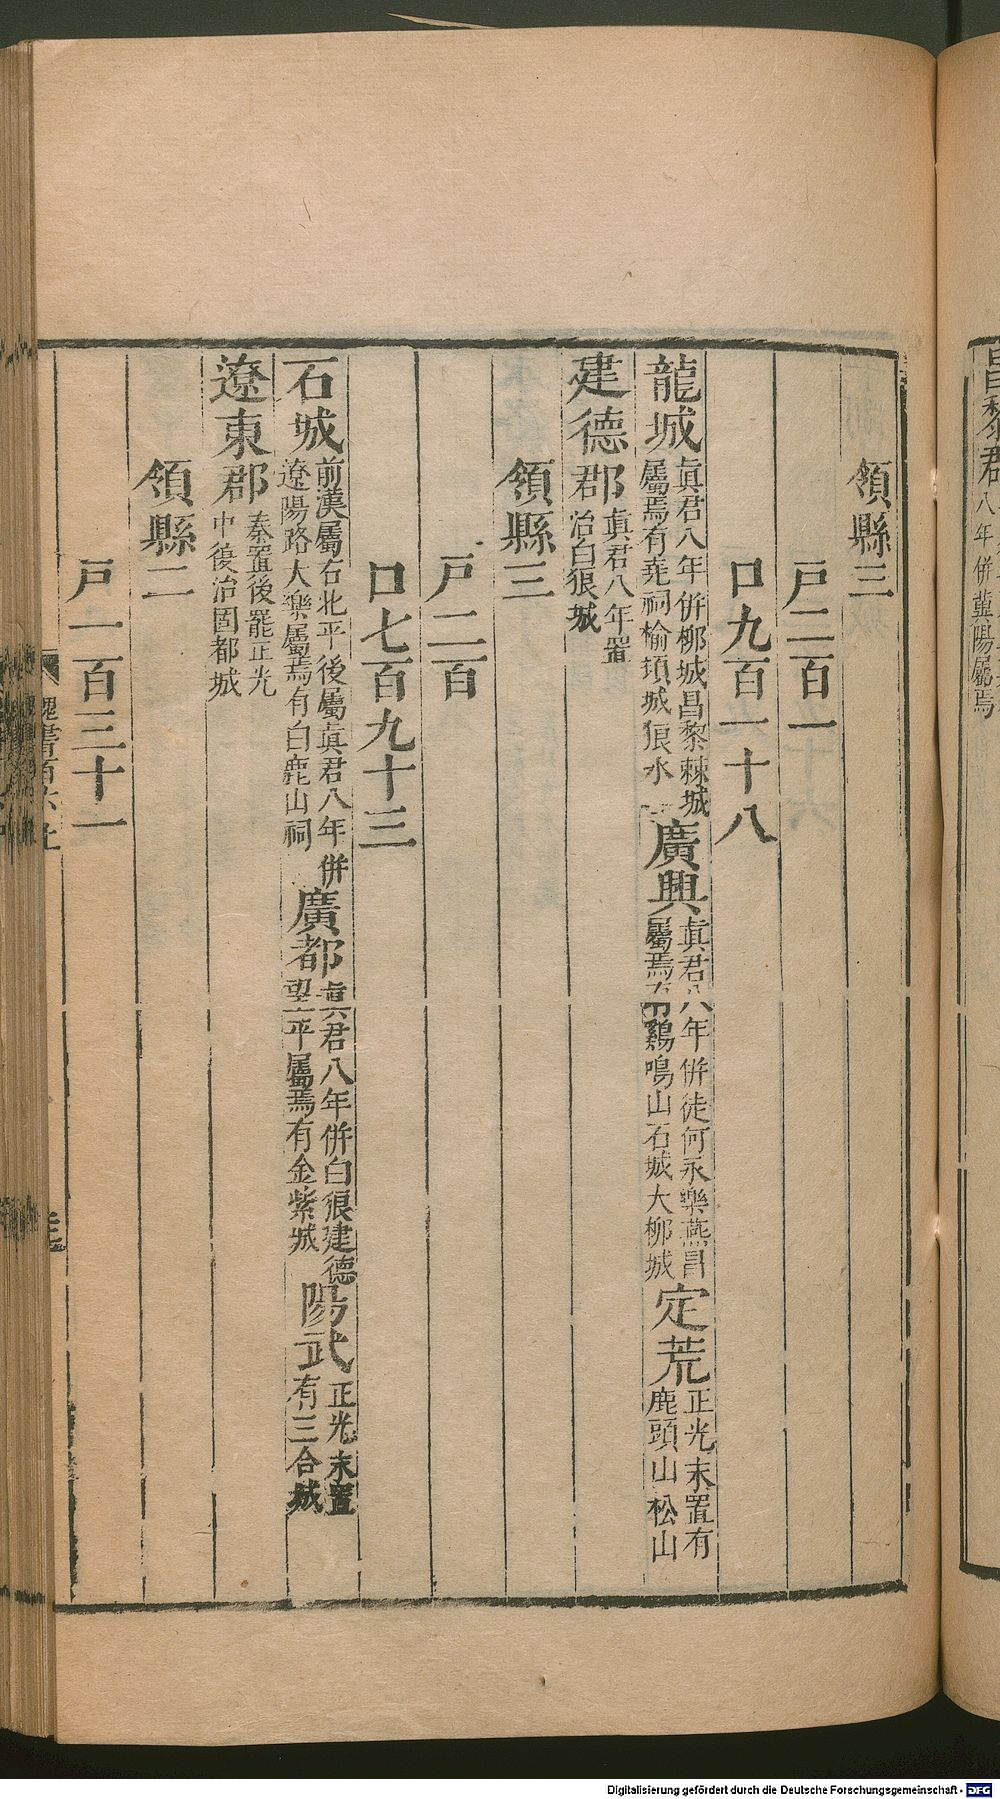 昌黎郡
八年併冀陽屬焉
領縣三
戸二百一
口九百一十八
龍城 眞君八年併柳城昌黎棘城屬焉有堯祠榆頓城狼水 廣興 眞君八年併徒何永樂燕昌屬焉有雞鳴山石城大柳城 定荒 正光末置有鹿頭山松山
建德郡 眞君八年置治白狼城
領縣三
戸二百
口七百九十三
石城 前漢屬右北平後屬眞君八年併遼陽路大樂屬焉有白鹿山祠 廣都 眞君八年併白狼建德望平屬焉有金紫城 陽武 正光末置有三合城
遼東郡 秦置後罷正光中復治固都城
領縣二
戸一百三十一
魏書百六上
Digitalisierung gefördert durch die Deutsche Forschungsgemeinschaft - DFG